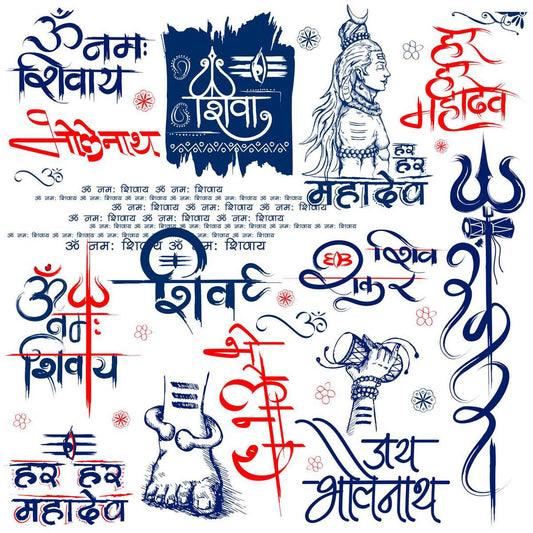 ॐ नमः
शिवाय
भोलेनाथ
शिवा
हर
हर
महादेव
हर
हर
महादेव
ॐ नमः शिवाय ॐ नमः शिवाय
ॐ नमः शिवाय ॐ नमः शिवाय ॐ नमः शिवाय ॐ नमः शिवाय
ॐ नमः शिवाय ॐ नमः शिवाय ॐ नमः शिवाय
ॐ नमः शिवाय ॐ नमः शिवाय ॐ नमः शिवाय
ॐ नमः शिवाय ॐ नमः शिवाय ॐ नमः शिवाय ॐ नमः शिवाय ॐ नमः शिवाय
ॐ नमः शिवाय ॐ नमः शिवाय ॐ नमः शिवाय ॐ नमः शिवाय
ॐ नमः शिवाय ॐ नमः शिवाय
ॐ
शिव
शिव
शंकर
ॐ
नमः
शिवाय
ॐ
हर हर
महादेव
जय
भोलेनाथ